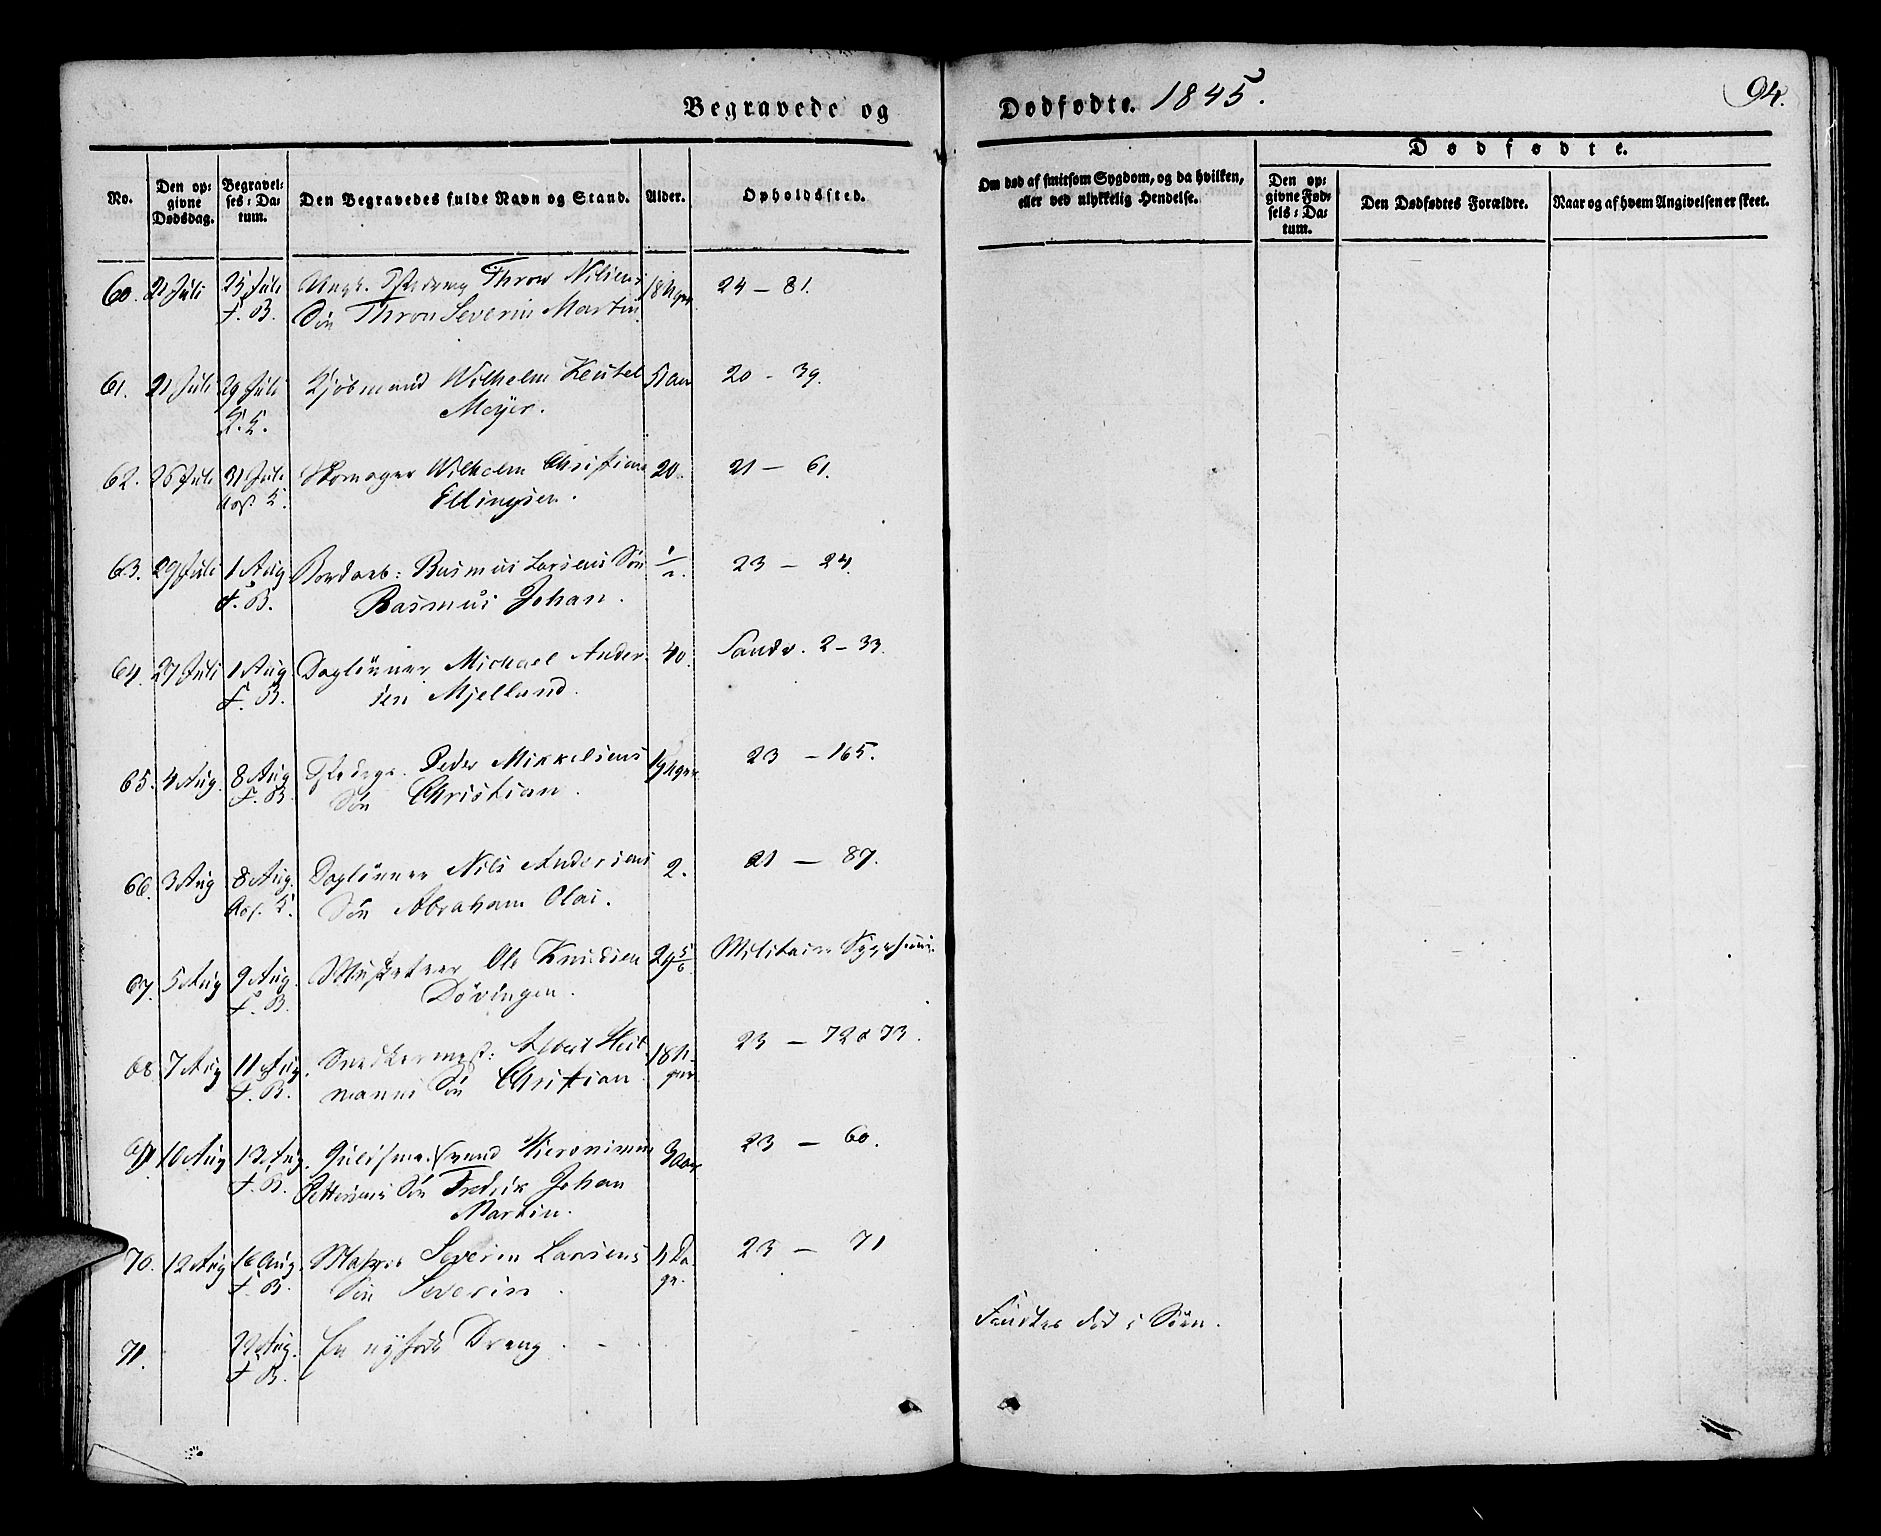 Begravede og
Dødfødte. 1845.
94.
No.
Den opgivne Dødsdag.
Begravelses-Datum.
Den Begravedes fulde Navn og Stand.
Alder.
Opholdssted.
Om død af smitsom Sygdom, og da hvilken, eller ved ulykkelig Hendelse.
Dødfødte.
Den opgivne Fødsels-Datum.
Den Dødfødtes Forældre.
Naar og af hvem Angivelsen er skeet.
60. 21 Juli 25 Juli Thron Nilsens 18 Uger 24 — 81.
F. B. Søn Thron Severin Martin
61. 21 Juli 29 Juli Kjøbmand Wilhelm Keutel 51 Aar 20 - 39.
Meyer.
62. 26 Juli 31 Juli Skomager Wilhelm Christian 20. 21 — 61.
Ellingsen.
63. 29 Juli 1 Aug Bordarb: Rasmus Larsens Søn 1/2. 23 — 24.
F. B. Rasmus Johan.
64. 27 Juli 1 Aug Daglønner Michael Ander- 40. Sandv. 2 — 33.
F. B. sen Mjelland.
65. 4 Aug. 8 Aug Peder Mikkelsens 19 Uger 23 — 165.
F. B. Søn Christian.
66. 3 Aug 8 Aug. Daglønner Nils Andersens 2. 21 — 87.
Søn Abraham Olai.
67. 5 Aug 9 Aug. Musketeer Ole Knudsen 29 5/6. Militair Sygehuus.
F. B. Døvingen.
68. 7 Aug 11 Aug. Snedkermest: Albert Heit- 18 U- 23 — 72 & 73.
F. B. manns Søn Christian ger
69. 10 Aug 13 Aug. Svend Hieronimus 3 Aar 23 — 60.
F. B. Pettersens Søn Fredrik Johan
Martin.
70. 12 Aug 16 Aug. Matros Severin Larsens 4 Da- 23 — 71
F. B. Søn Severin. ge.
71. 22 Aug. En nyfødt Dreng. Fandtes død i Søen.
F. B.